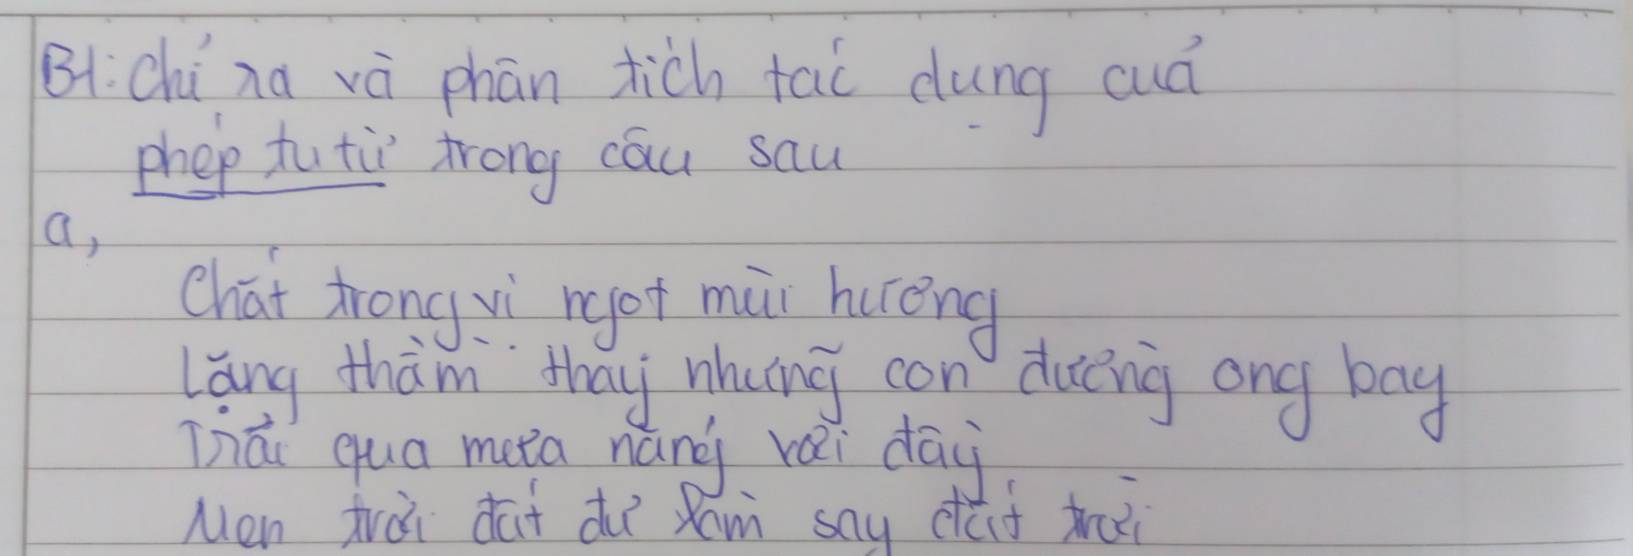 B1: Chỉ ra và phân tích tác dụng của
phép tu từ trong câu sau
a,
Chắt trong vị ngọt mùi hương
Lặng thầm thay những con đường ong bay
Trải qua mưa nắng vơi đầy
Men trời đất đủ làm say đất trời